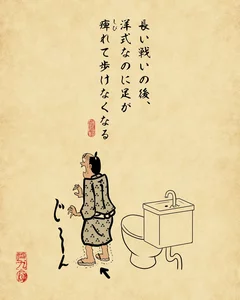 長い戦いの後、
洋式なのに足が
痺れて歩けなくなる
しび
じ〜ん